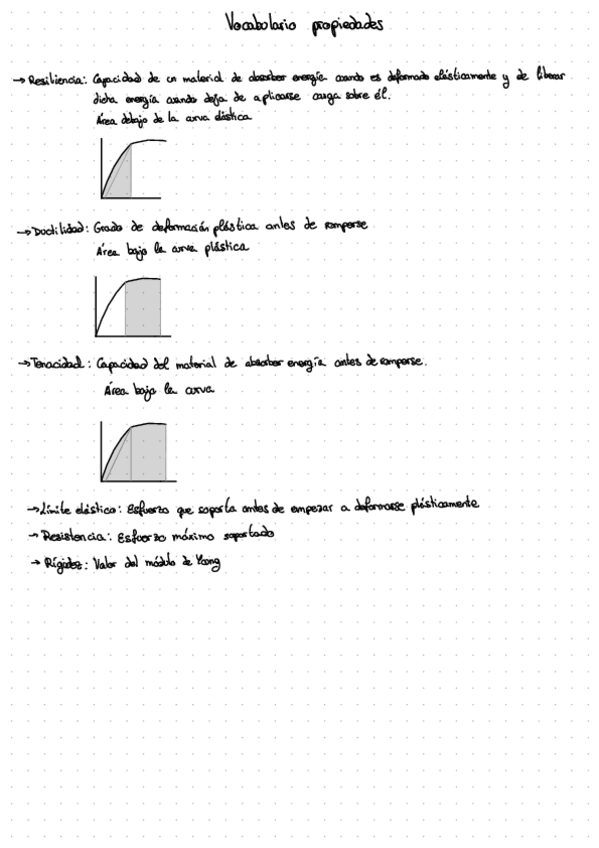 Vocabulario propiedades
→ Resiliencia: Capacidad de un material de absorber energía cuando es deformado elásticamente y de liberar
dicha energía cuando deja de aplicarse carga sobre él.
Área debajo de la curva elástica
→ Ductilidad: Grado de deformación plástica antes de romperse
Área bajo la curva plástica
→ Tenacidad: Capacidad del material de absorber energía antes de romperse.
Área bajo la curva
→ Límite elástico: Esfuerzo que soporta antes de empezar a deformarse plásticamente
→ Resistencia: Esfuerzo máximo soportado
→ Rígidez: Valor del módulo de Young